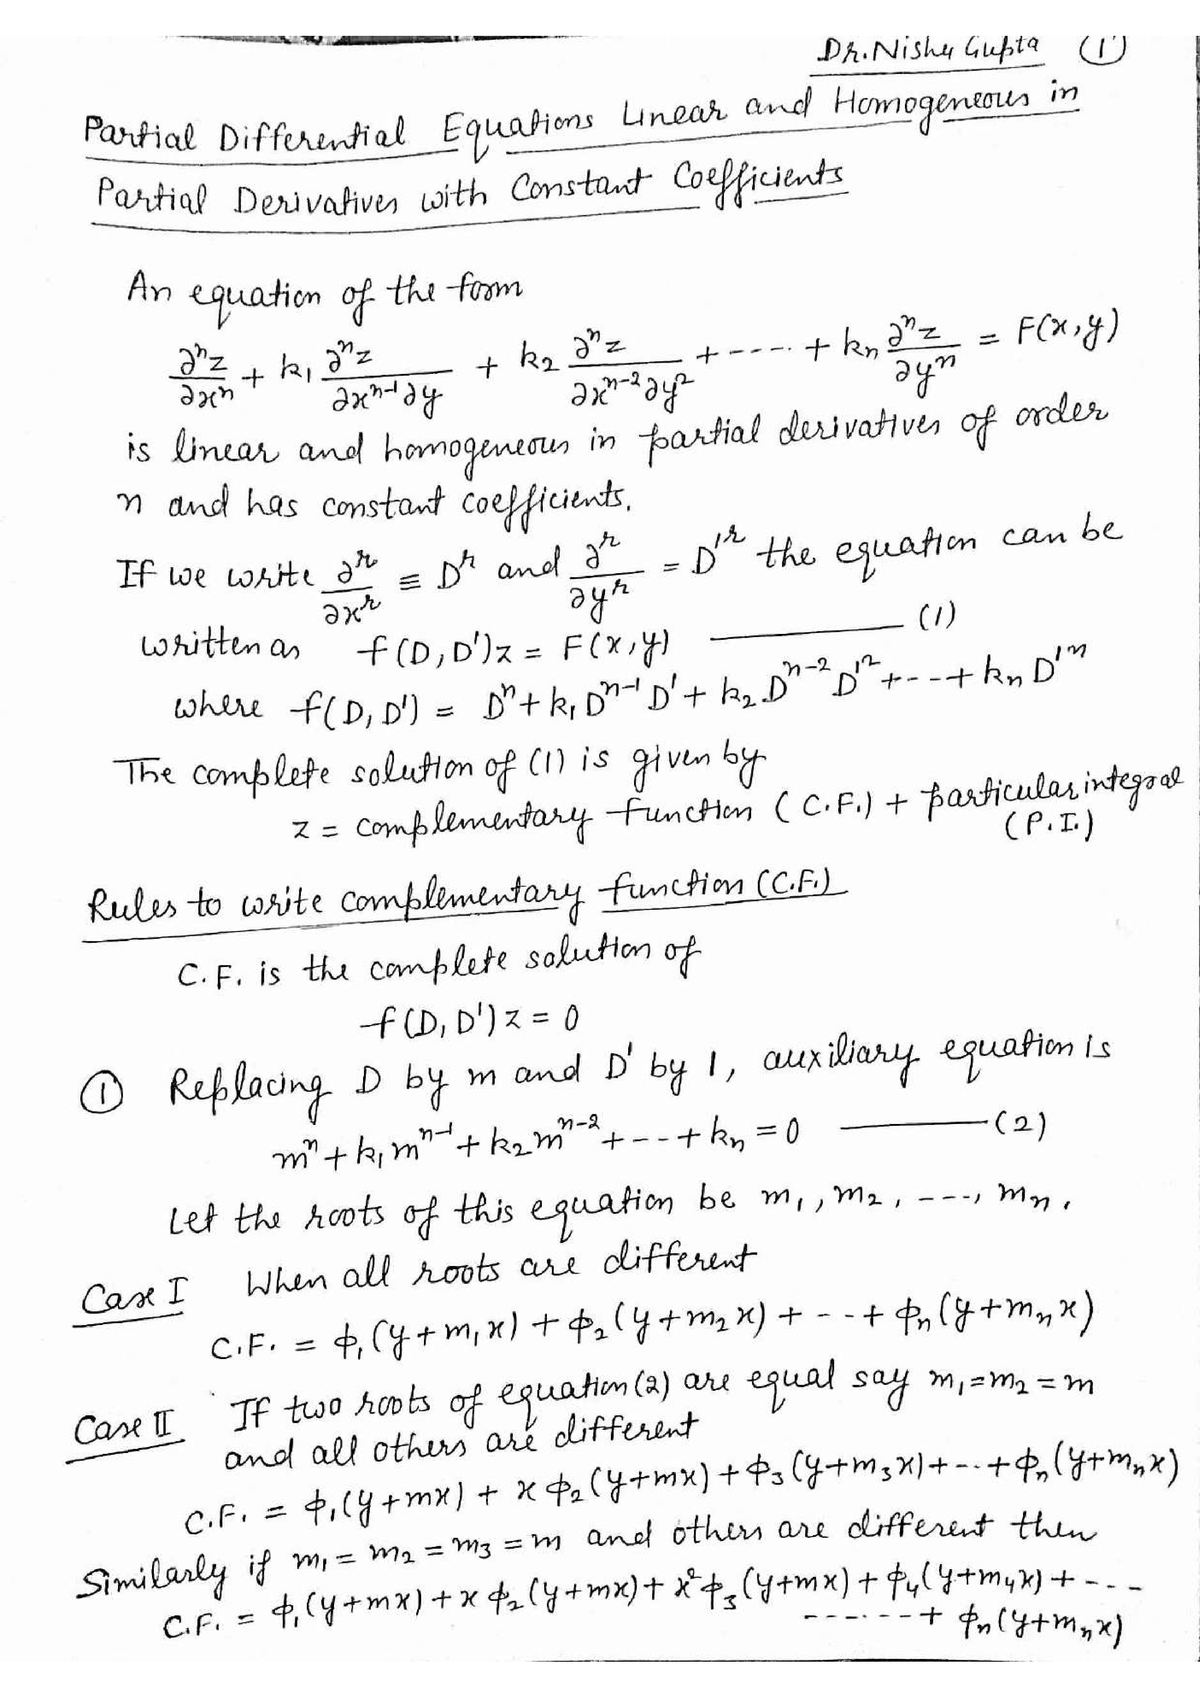 Dr. Nishu Gupta (1)
Partial Differential Equations Linear and Homogeneous in
Partial Derivatives with Constant Coefficients
An equation of the form
∂ⁿz/∂xⁿ + k₁ ∂ⁿz/∂xⁿ⁻¹∂y + k₂ ∂ⁿz/∂xⁿ⁻²∂y² + ---- + kₙ ∂ⁿz/∂yⁿ = F(x,y)
is linear and homogeneous in partial derivatives of order
n and has constant coefficients.
If we write ∂ʳ/∂xʳ ≡ Dʳ and ∂ʳ/∂yʳ = D'ʳ the equation can be
written as f(D,D')z = F(x,y) ——— (1)
where f(D,D') = Dⁿ + k₁Dⁿ⁻¹D' + k₂Dⁿ⁻²D'² + --- + kₙD'ⁿ
The complete solution of (1) is given by
z = complementary function (C.F.) + particular integral
(P.I.)
Rules to write complementary function (C.F.)
C.F. is the complete solution of
f(D,D')z = 0
① Replacing D by m and D' by 1, auxiliary equation is
mⁿ + k₁mⁿ⁻¹ + k₂mⁿ⁻² + --- + kₙ = 0 ——— (2)
Let the roots of this equation be m₁, m₂, ---, mₙ.
Case I When all roots are different
C.F. = ϕ₁(y+m₁x) + ϕ₂(y+m₂x) + --- + ϕₙ(y+mₙx)
Case II If two roots of equation (2) are equal say m₁=m₂=m
and all others are different
C.F. = ϕ₁(y+mx) + xϕ₂(y+mx) + ϕ₃(y+m₃x) + --- + ϕₙ(y+mₙx)
Similarly if m₁ = m₂ = m₃ = m and others are different then
C.F. = ϕ₁(y+mx) + xϕ₂(y+mx) + x²ϕ₃(y+mx) + ϕ₄(y+m₄x) + ---
------- + ϕₙ(y+mₙx)